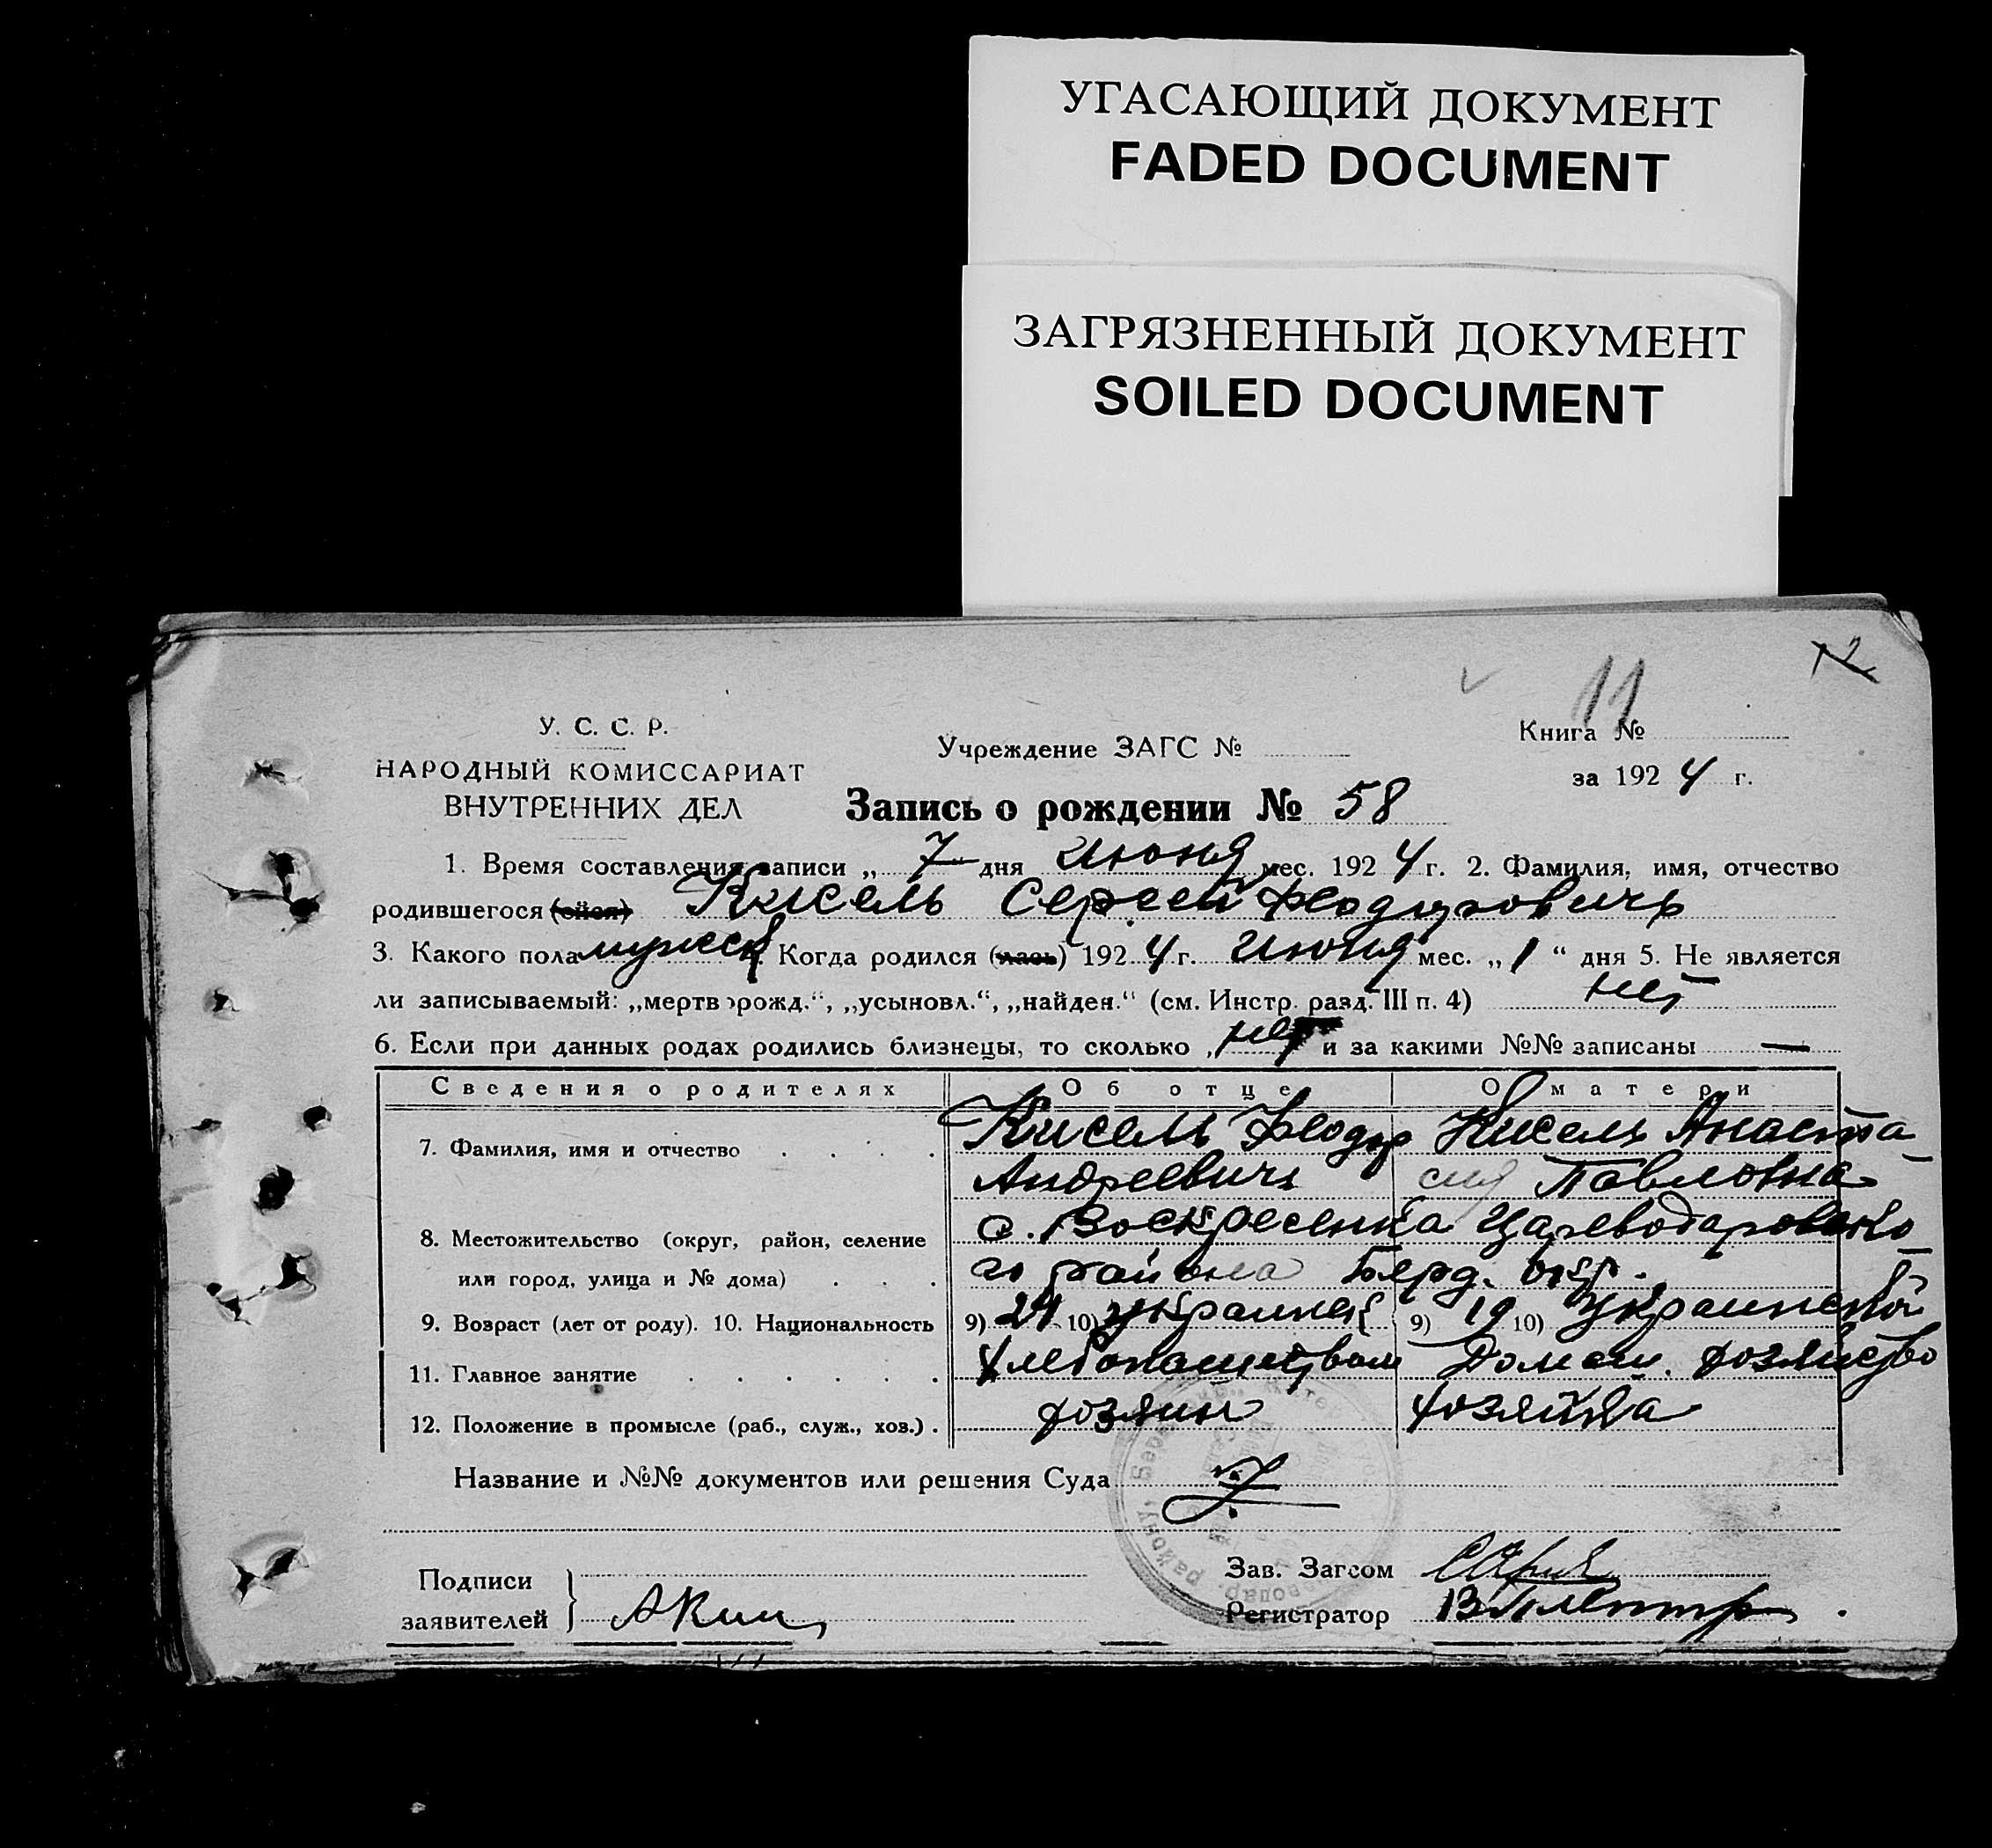 УГАСАЮЩИЙ ДОКУМЕНТ
FADED DOCUMENT
ЗАГРЯЗНЕННЫЙ ДОКУМЕНТ
SOILED DOCUMENT
12
11
У. С. С. Р.
НАРОДНЫЙ КОМИССАРИАТ
ВНУТРЕННИХ ДЕЛ
Учреждение ЗАГС №
Книга №
за 1924 г.
Запись о рождении № 58
1. Время составления записи „ 7 дня июня мес. 1924 г. 2. Фамилия, имя, отчество
родившегося (ейся) Кисель Сергей Феодорович
3. Какого пола мужск Когда родился (лась) 1924 г. июня мес. „1“ дня 5. Не является
ли записываемый: „мертворожд.“, „усыновл.“, „найден.“ (см. Инстр. разд. III п. 4) нет
6. Если при данных родах родились близнецы, то сколько нет и за какими №№ записаны —
Сведения о родителях Об отце О матери
7. Фамилия, имя и отчество Кисель Феодор Кисель Анаста
Андреевичъ сия Павловна
8. Местожительство (округ, район, селение с. Воскресенка Цареводаровско
или город, улица и № дома) го района Берд. окр.
9. Возраст (лет от роду). 10. Национальность 9) 24 10) украинск 9) 19 10) Украинская
11. Главное занятие Хлебопашеством Домаш. хозяйство
12. Положение в промысле (раб., служ., хоз.) хозяин хозяйка
Название и №№ документов или решения Суда
Подписи
заявителей
Зав. Загсом
Регистратор